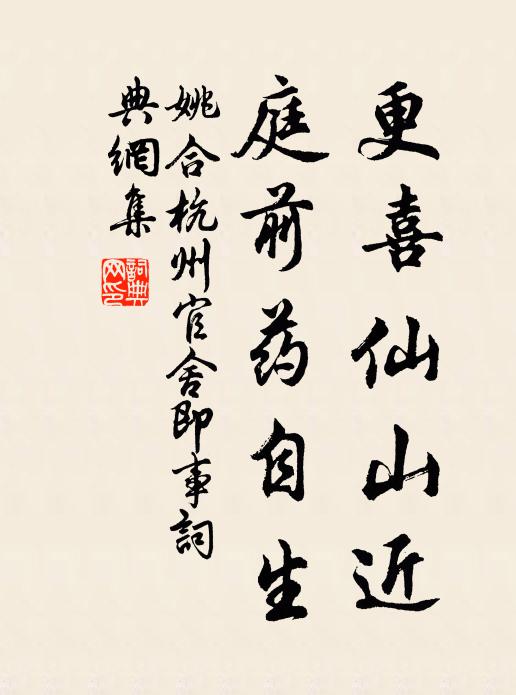 更喜仙山近
庭前药自生
姚合杭州官舍即事詞
典網集
詞典
网印